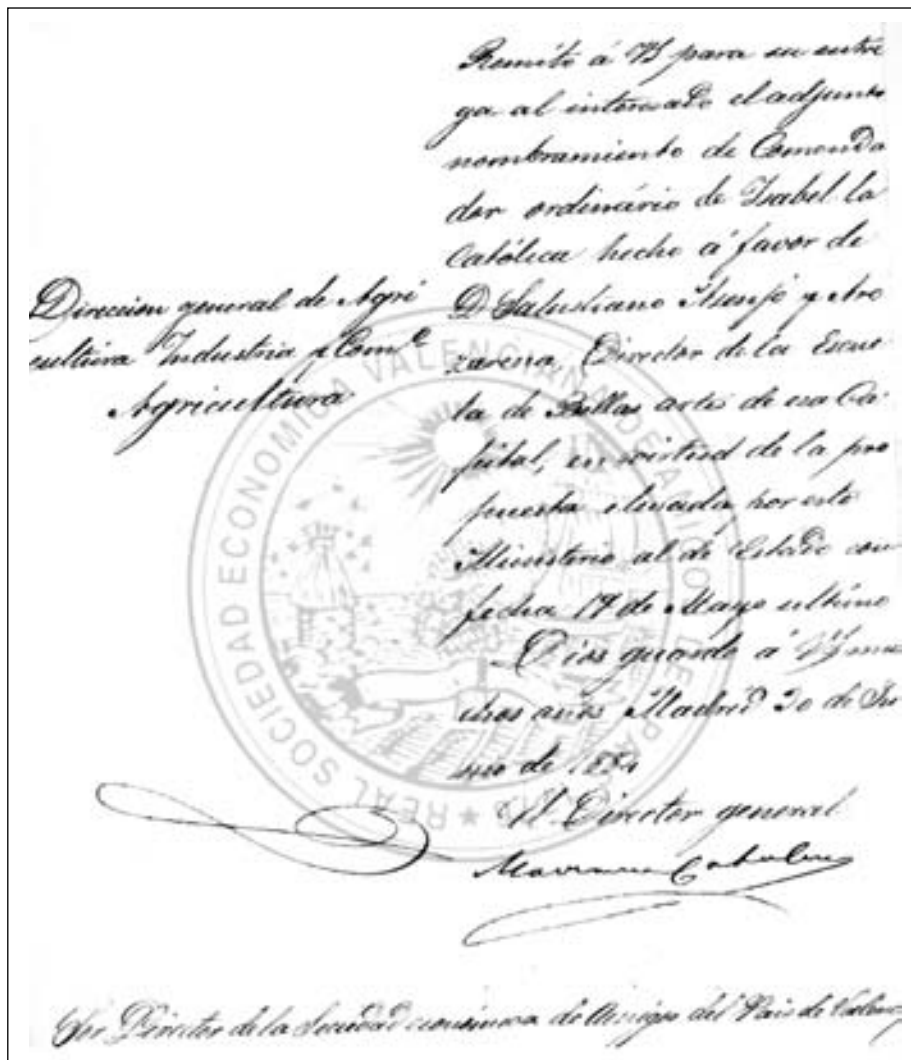 Remito á VS para su entre
ga al interesado el adjunto
nombramiento de Comenda
dor ordinário de Isabel la
Católica hecho á favor de
D Salustiano Asenjo y Aro
zarena, Director de la Escue
la de Bellas artes de esa Ca-
pital, en virtud de la pro
puesta elevada por este
Ministerio al de Estado con
fecha 17 de Mayo ultimo
Dios guarde á VS mu
chos años Madrid 20 de Ju
nio de 1884
El Director general
Direccion general de Agri
cultura Industria y Com.º
Agricultura
Sor Director de la Sociedad económica de Amigos del Pais de Valencia
REAL SOCIEDAD ECONOMICA VALENCIANA DE AMIGOS DEL PAIS